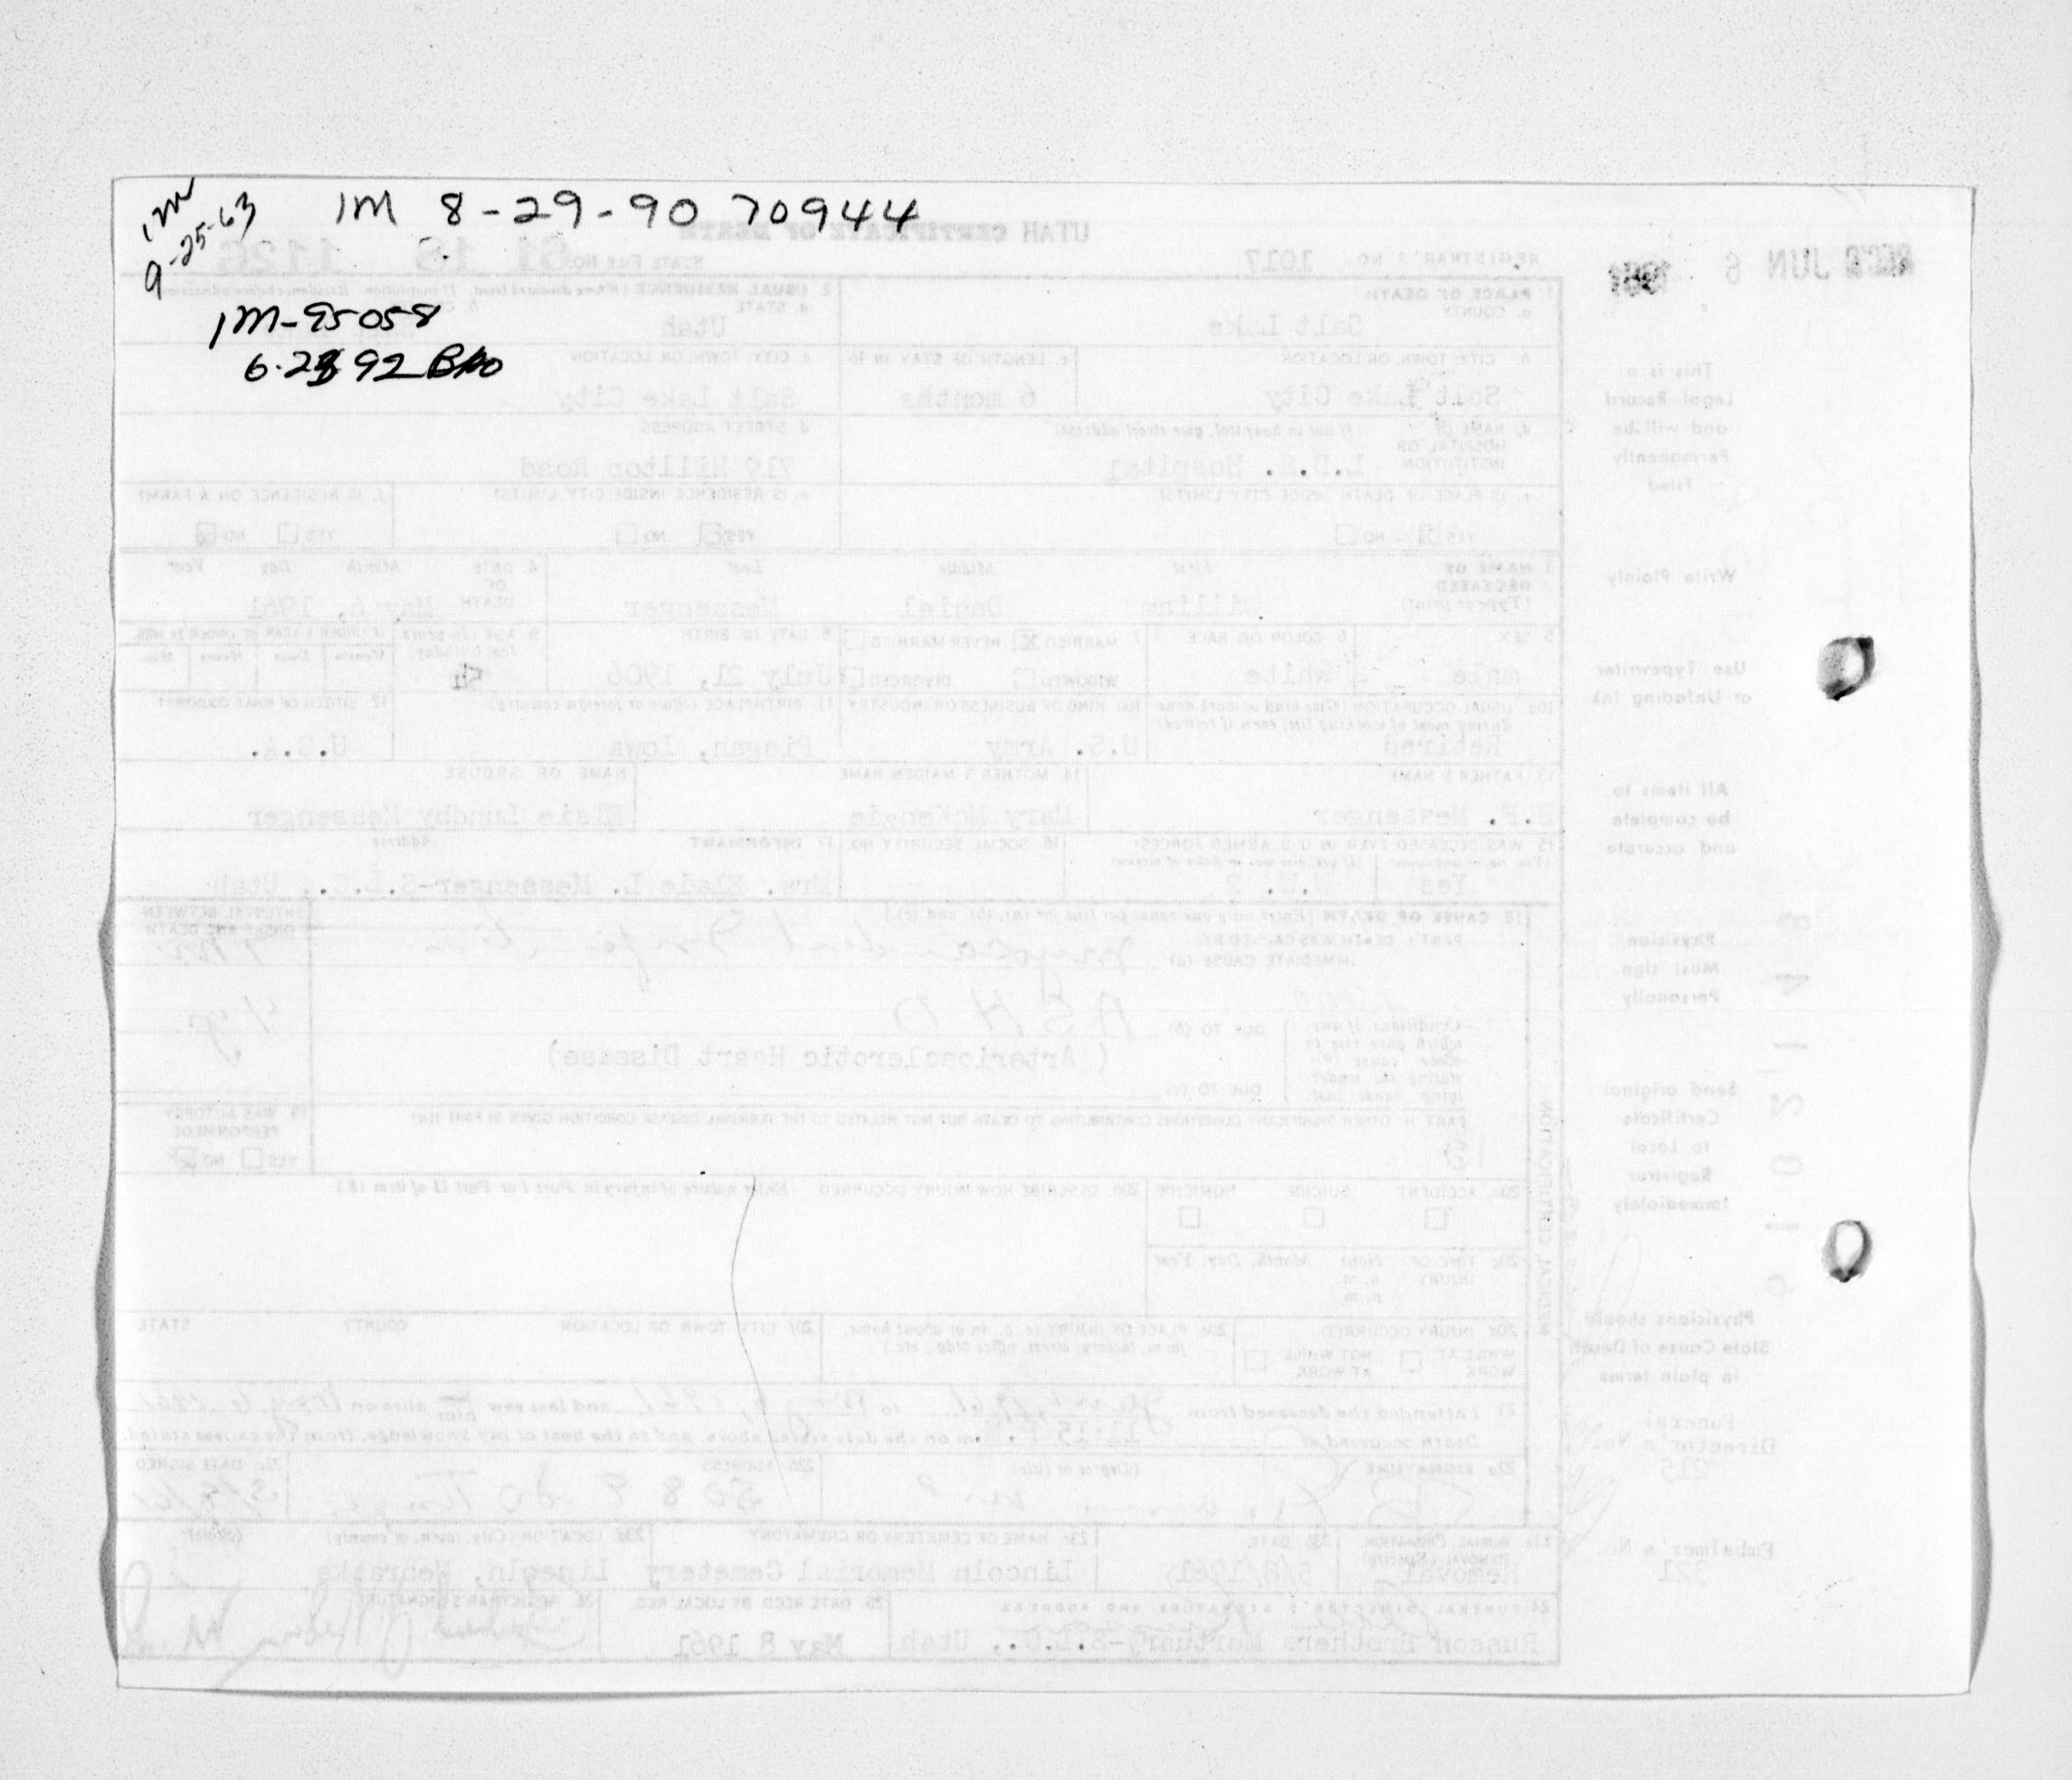 1M 8-29-90 70944
1M
9-25-63
1M-95058
6-23 92
UTAH CERTIFICATE OF DEATH
REGISTRAR'S NO. 1017
STATE FILE NO. 61 18 1126
REC'D JUN 6 1961
1. PLACE OF DEATH
a. COUNTY
Salt Lake
2. USUAL RESIDENCE (Where deceased lived. If institution: Residence before admission)
a. STATE
Utah
b. CITY, TOWN, OR LOCATION
Salt Lake City
c. LENGTH OF STAY IN 1b
6 months
c. CITY, TOWN, OR LOCATION
Salt Lake City
d. NAME OF HOSPITAL OR INSTITUTION
(If not in hospital, give street address)
L.D.S. Hospital
d. STREET ADDRESS
719 Hilltop Road
e. IS PLACE OF DEATH INSIDE CITY LIMITS?
YES NO
e. IS RESIDENCE INSIDE CITY LIMITS?
YES NO
f. IS RESIDENCE ON A FARM?
YES NO
3. NAME OF DECEASED
(Type or print)
First Middle Last
William Daniel Messenger
4. DATE OF DEATH
Month Day Year
May 6, 1961
5. SEX
Male
6. COLOR OR RACE
White
7. MARRIED NEVER MARRIED
WIDOWED DIVORCED
8. DATE OF BIRTH
July 21, 1906
9. AGE (In years last birthday)
54
IF UNDER 1 YEAR
IF UNDER 24 HRS.
10a. USUAL OCCUPATION (Give kind of work done during most of working life, even if retired)
Retired
10b. KIND OF BUSINESS OR INDUSTRY
U.S. Army
11. BIRTHPLACE (State or foreign country)
Pisgah, Iowa
12. CITIZEN OF WHAT COUNTRY?
U.S.A.
13. FATHER'S NAME
Messenger
14. MOTHER'S MAIDEN NAME
Mary McKenzie
NAME OF SPOUSE
Elsie Lundby Messenger
15. WAS DECEASED EVER IN U.S. ARMED FORCES?
(Yes, no, or unknown) (If yes, give war or dates of service)
Yes W.W. 2
16. SOCIAL SECURITY NO.
17. INFORMANT Address
Mrs. Elsie L. Messenger-S.L.C., Utah
18. CAUSE OF DEATH [Enter only one cause per line for (a), (b), and (c).]
PART I. DEATH WAS CAUSED BY:
IMMEDIATE CAUSE (a)
Myocardial Infarction
INTERVAL BETWEEN ONSET AND DEATH
Conditions, if any, which gave rise to above cause (a), stating the underlying cause last
DUE TO (b)
A S H D
( Arteriosclerotic Heart Disease)
DUE TO (c)
PART II. OTHER SIGNIFICANT CONDITIONS CONTRIBUTING TO DEATH BUT NOT RELATED TO THE TERMINAL DISEASE CONDITION GIVEN IN PART I(a)
19. WAS AUTOPSY PERFORMED?
YES NO
20a. ACCIDENT SUICIDE HOMICIDE
20b. DESCRIBE HOW INJURY OCCURRED (Enter nature of injury in Part I or Part II of item 18.)
20c. TIME OF INJURY Hour Month, Day, Year
a.m.
p.m.
20d. INJURY OCCURRED
WHILE AT WORK NOT WHILE AT WORK
20e. PLACE OF INJURY (e. g., in or about home, farm, factory, street, office bldg., etc.)
20f. CITY, TOWN OR LOCATION COUNTY STATE
21. I attended the deceased from to May 6, 1961 and last saw him alive on May 6 1961
Death occurred at 11:15 P. m on the date stated above, and to the best of my knowledge, from the causes stated.
22a. SIGNATURE (Degree or title)
22b. ADDRESS
508 E So Temple
22c. DATE SIGNED
5/8/61
23a. BURIAL, CREMATION REMOVAL (Specify)
Removal
23b. DATE
5/8/1961
23c. NAME OF CEMETERY OR CREMATORY
Lincoln Memorial Cemetery
23d. LOCATION (City, town, or county) (State)
Lincoln, Nebraska
24. FUNERAL DIRECTOR'S SIGNATURE AND ADDRESS
Russon Brothers Mortuary-S.L.C., Utah
25. DATE REC'D BY LOCAL REG.
May 8 1961
26. REGISTRAR'S SIGNATURE
MEDICAL CERTIFICATION
This is a
Legal Record
and will be
Permanently
Filed
Write Plainly
Use Typewriter
or Unfading Ink
All items to
be complete
and accurate
Physician
Must sign
Personally
Send original
Certificate
to Local
Registrar
Immediately
Physicians should
State Cause of Death
in plain terms
Funeral
Director's No.
215
Embalmer's No.
321